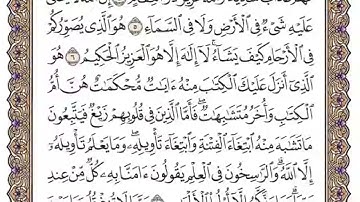 عَلَيْهِ شَىْءٌ فِى ٱلْأَرْضِ وَلَا فِى ٱلسَّمَآءِ ٥ هُوَ ٱلَّذِى يُصَوِّرُكُمْ
فِى ٱلْأَرْحَامِ كَيْفَ يَشَآءُ ۚ لَآ إِلَٰهَ إِلَّا هُوَ ٱلْعَزِيزُ ٱلْحَكِيمُ ٦ هُوَ
ٱلَّذِىٓ أَنزَلَ عَلَيْكَ ٱلْكِتَٰبَ مِنْهُ ءَايَٰتٌ مُّحْكَمَٰتٌ هُنَّ أُمُّ
ٱلْكِتَٰبِ وَأُخَرُ مُتَشَٰبِهَٰتٌ ۖ فَأَمَّا ٱلَّذِينَ فِى قُلُوبِهِمْ زَيْغٌ فَيَتَّبِعُونَ
مَا تَشَٰبَهَ مِنْهُ ٱبْتِغَآءَ ٱلْفِتْنَةِ وَٱبْتِغَآءَ تَأْوِيلِهِۦ ۗ وَمَا يَعْلَمُ تَأْوِيلَهُۥٓ
إِلَّا ٱللَّهُ ۗ وَٱلرَّٰسِخُونَ فِى ٱلْعِلْمِ يَقُولُونَ ءَامَنَّا بِهِۦ كُلٌّ مِّنْ عِندِ